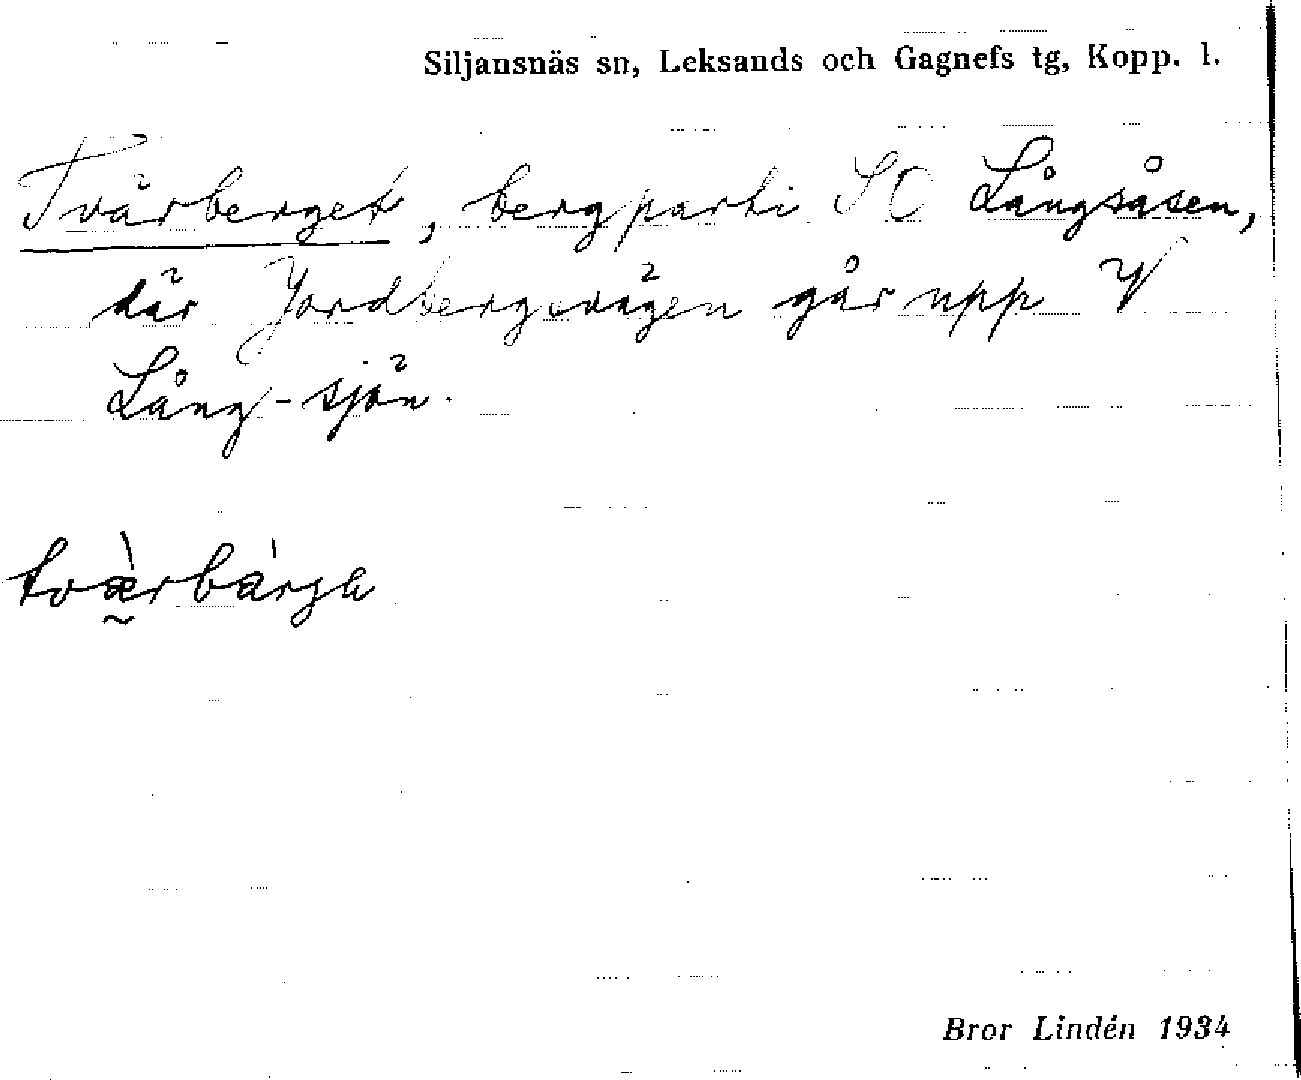 Siljansnäs sn, Leksands och Gagnefs tg, Kopp. l.
Tvärberget, bergparti SO Långsåsen,
där Jordbergsvägen går upp V
Lång-sjön.
tvæ̀rbárga
Bror Lindén 1934